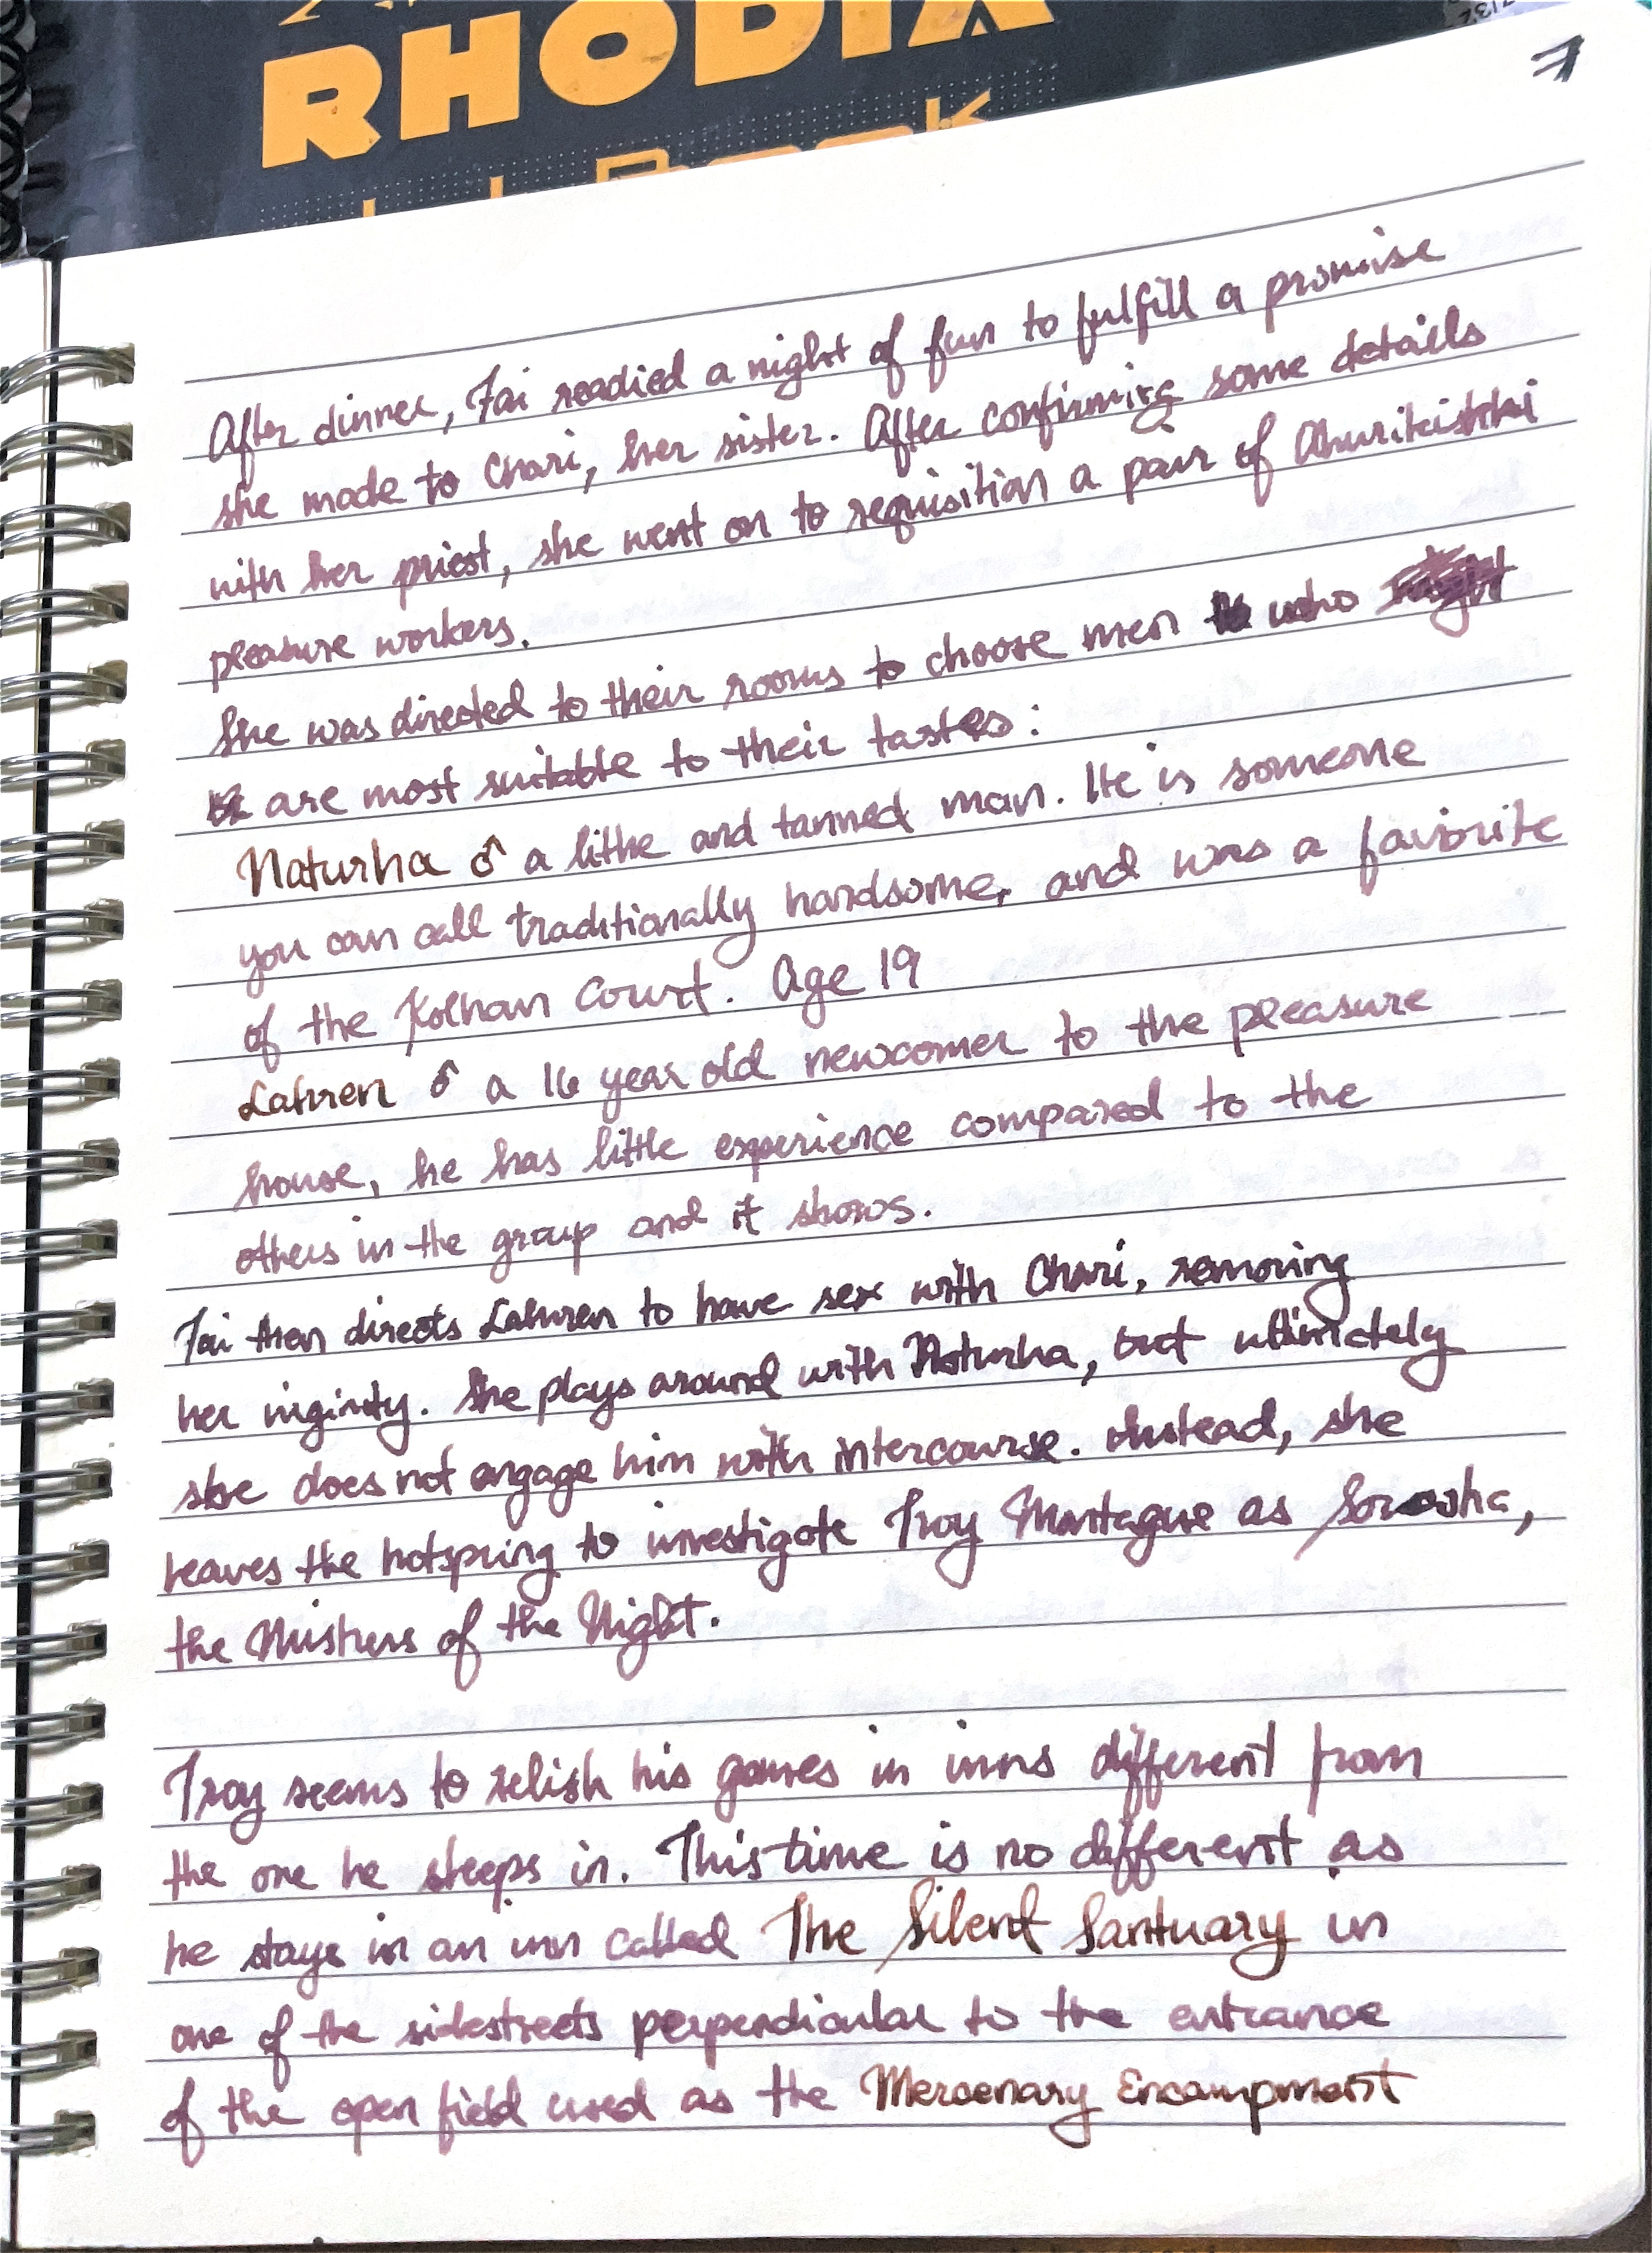 RHODIA
7
After dinner, Fai readied a night of fun to fulfill a promise
she made to Chari, her sister. After confirming some details
with her priest, she went on to requisition a pair of
pleasure workers.
She was directed to their rooms to choose men who
are most suitable to their tastes:
Naturha ♂ a lithe and tanned man. He is someone
you can call traditionally handsome, and was a favorite
of the Court. Age 19
Lahren ♂ a 16 year old newcomer to the pleasure
house, he has little experience compared to the
others in the group and it shows.
Fai then directs Lahren to have sex with Chari, removing
her virginity. She plays around with Naturha, but ultimately
she does not engage him with intercourse. Instead, she
leaves the hotspring to investigate Troy as
the Mistress of the Night.
Troy seems to relish his games in inns different from
the one he sleeps in. This time is no different as
he stays in an inn called The Silent Santuary in
one of the sidestreets perpendicular to the entrance
of the open field used as the Mercenary Encampment